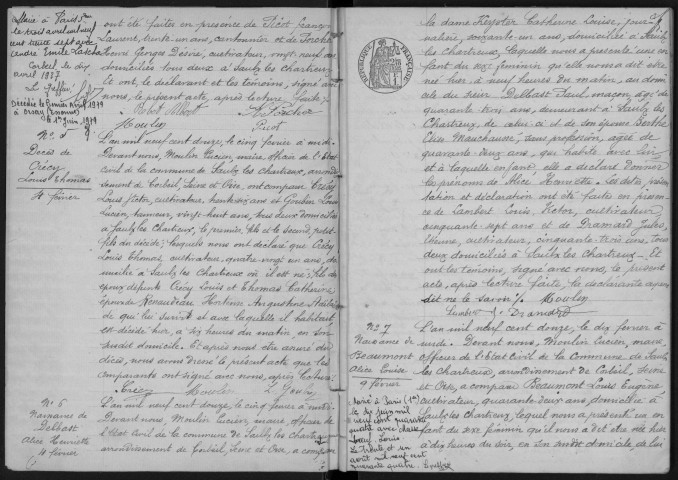 Marié à Paris 5e
le trois avril mil neuf
cent trente sept avec
André Emile
Corbeil le dix
avril 1937
Le Greffier
Décédée le 1979
à Orsay (Essonne)
le 1er Juin 1979
No 5
Décès de
Crécy
Louis Thomas
4 février
No 6
Naissance de
Delbast
Alice Henriette
4 février
ont été faites en présence de Picot François
Laurent, trente un ans, cantonnier et de Porcher
Henri Georges Désiré, cultivateur, vingt neuf ans
domiciliés tous deux à Saulx les Chartreux
Et ont, le déclarant et les témoins, signé avec
nous, le présent acte, après lecture faite
Albert A. Porcher
Moulin Picot
L'an mil neuf cent douze, le cinq février à midi
Devant nous, Moulin Lucien, maire, officier de l'Etat
civil de la commune de Saulx les chartreux, arrondis-
sement de Corbeil, Seine et Oise, ont comparu Crécy
Louis Victor, cultivateur, trente six ans et Goubin Louis
Lucien, vingt huit ans, tous deux domiciliés
à Saulx les Chartreux, le premier, fils et le second, petit
fils du décédé; lesquels nous ont déclaré que Crécy
Louis Thomas, cultivateur, quatre vingt un ans, do-
micilié à Saulx les Chartreux où il est né; fils de
époux défunts Crécy Louis et Thomas Catherine
Epoux de Renaudeau Hortense Augustine
de qui lui survit et avec laquelle il habitait
est décédé hier, à dix heures du matin, en son
susdit domicile. Et après nous être assuré du
décès, nous avons dressé le présent acte que les
comparants ont signé avec nous, après lecture
Crécy Moulin L. Goubin
L'an mil neuf cent douze, le cinq février à midi
Devant nous, Moulin Lucien, maire, officier de
l'Etat civil de la commune de Saulx les chartreux
arrondissement de Corbeil, Seine et Oise, a comparu
la dame Keyster Catherine Louise, jour-
nalière, soixante un ans, domiciliée à Saulx
les Chartreux, laquelle nous a présenté un en-
fant du sexe féminin qu'elle nous a dit être
née hier, à neuf heures du matin, au domi-
cile du sieur Delbast Paul, maçon, âgé de
quarante trois ans, demeurant à Saulx les
Chartreux, de celui-ci et de son épouse Berthe
Elise Mauchaussé, sans profession, âgée de
quarante deux ans, qui habite avec lui
et à laquelle enfant, elle a déclaré donner
les prénoms de Alice Henriette. Les dites présen-
tation et déclaration ont été faites en présen-
ce de Lambert Louis Victor, cultivateur
cinquante sept ans et de Dramard Jules
Etienne, cultivateur, cinquante trois ans, tous
deux domiciliés à Saulx les Chartreux. Et
ont les témoins, signé avec nous, le présent
acte, après lecture faite, la déclarante ayant
dit ne le savoir. Moulin
Lambert J. Dramard
No 7
Naissance de
Beaumont
Alice Louise
9 février
Marié à Paris (1er)
le dix juin mil
neuf cent quarante
quatre avec
Louis
Le trente et un
août mil neuf cent
quarante quatre. Greffier
L'an mil neuf cent douze, le dix février à
midi. Devant nous, Moulin Lucien, maire,
officier de l'Etat Civil de la Commune de Saulx
les Chartreux, arrondissement de Corbeil, Seine
et Oise, a comparu Beaumont Louis Eugène
cultivateur, quarante deux ans, domicilié à
Saulx les Chartreux, lequel nous a présenté un en-
fant du sexe féminin qu'il nous a dit être née hier
à dix heures du soir, en son susdit domicile, de lui